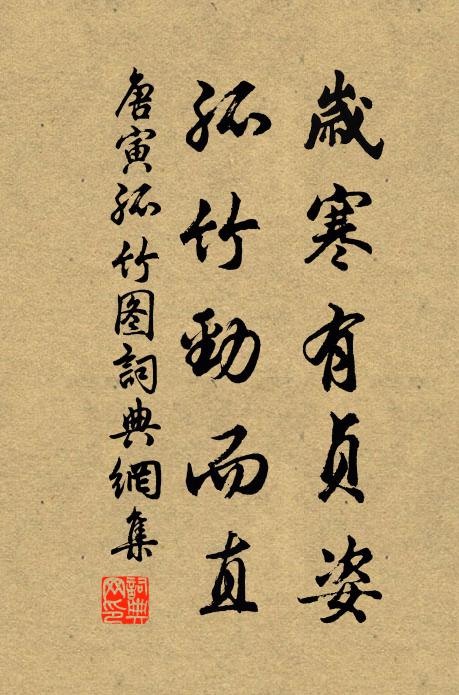 歲寒有貞姿
孤竹勁而直
唐寅孤竹图詞典網集
詞典網印